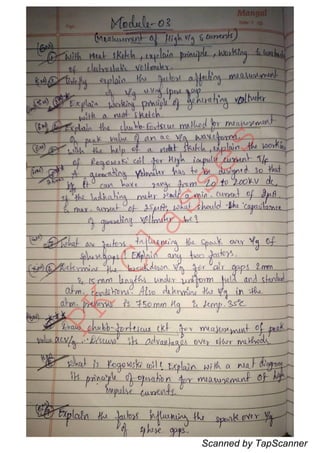 Mangal
Module-03
(Measurement of High V/g & currents)
With neat sketch, explain principle, working &
of electrostatic voltmeter.
Briefly explain the factors affecting measurement
of V/g using spare gap
Explain working principle of generating voltmeter
with a neat sketch.
Explain the chubb-fortscue method for measurement
of peak value of an ac V/g waveform
with the help of a neat sketch, explain the working
of Rogowski coil for High impulse current
A generating voltmeter has to be designed so that
it can have range from 20 to 200KV dc
if the indicating meter reads a min. current of 2μA
& max. current of 25μA, what should the capacitance
of generating voltmeter be?
What are factors influencing the spark over V/g of
sphere gaps. Explain any two factors.
Determine the breakdown V/g for air gaps 2mm
& 15mm lengths under uniform field and standard
atm. conditions. Also determine the V/g if the
atm. pressure is 750mm Hg & temp. 35°C.
Draw chubb-fortescue ckt for measurement of peak
value ac V/g. Discuss its advantages over other methods
What is Rogowski coil? Explain with a neat diagram
its principle of operation for measurement of high
impulse currents.
Explain the factors influencing the spark over V/g
of sphere gaps.
Scanned by TapScanner